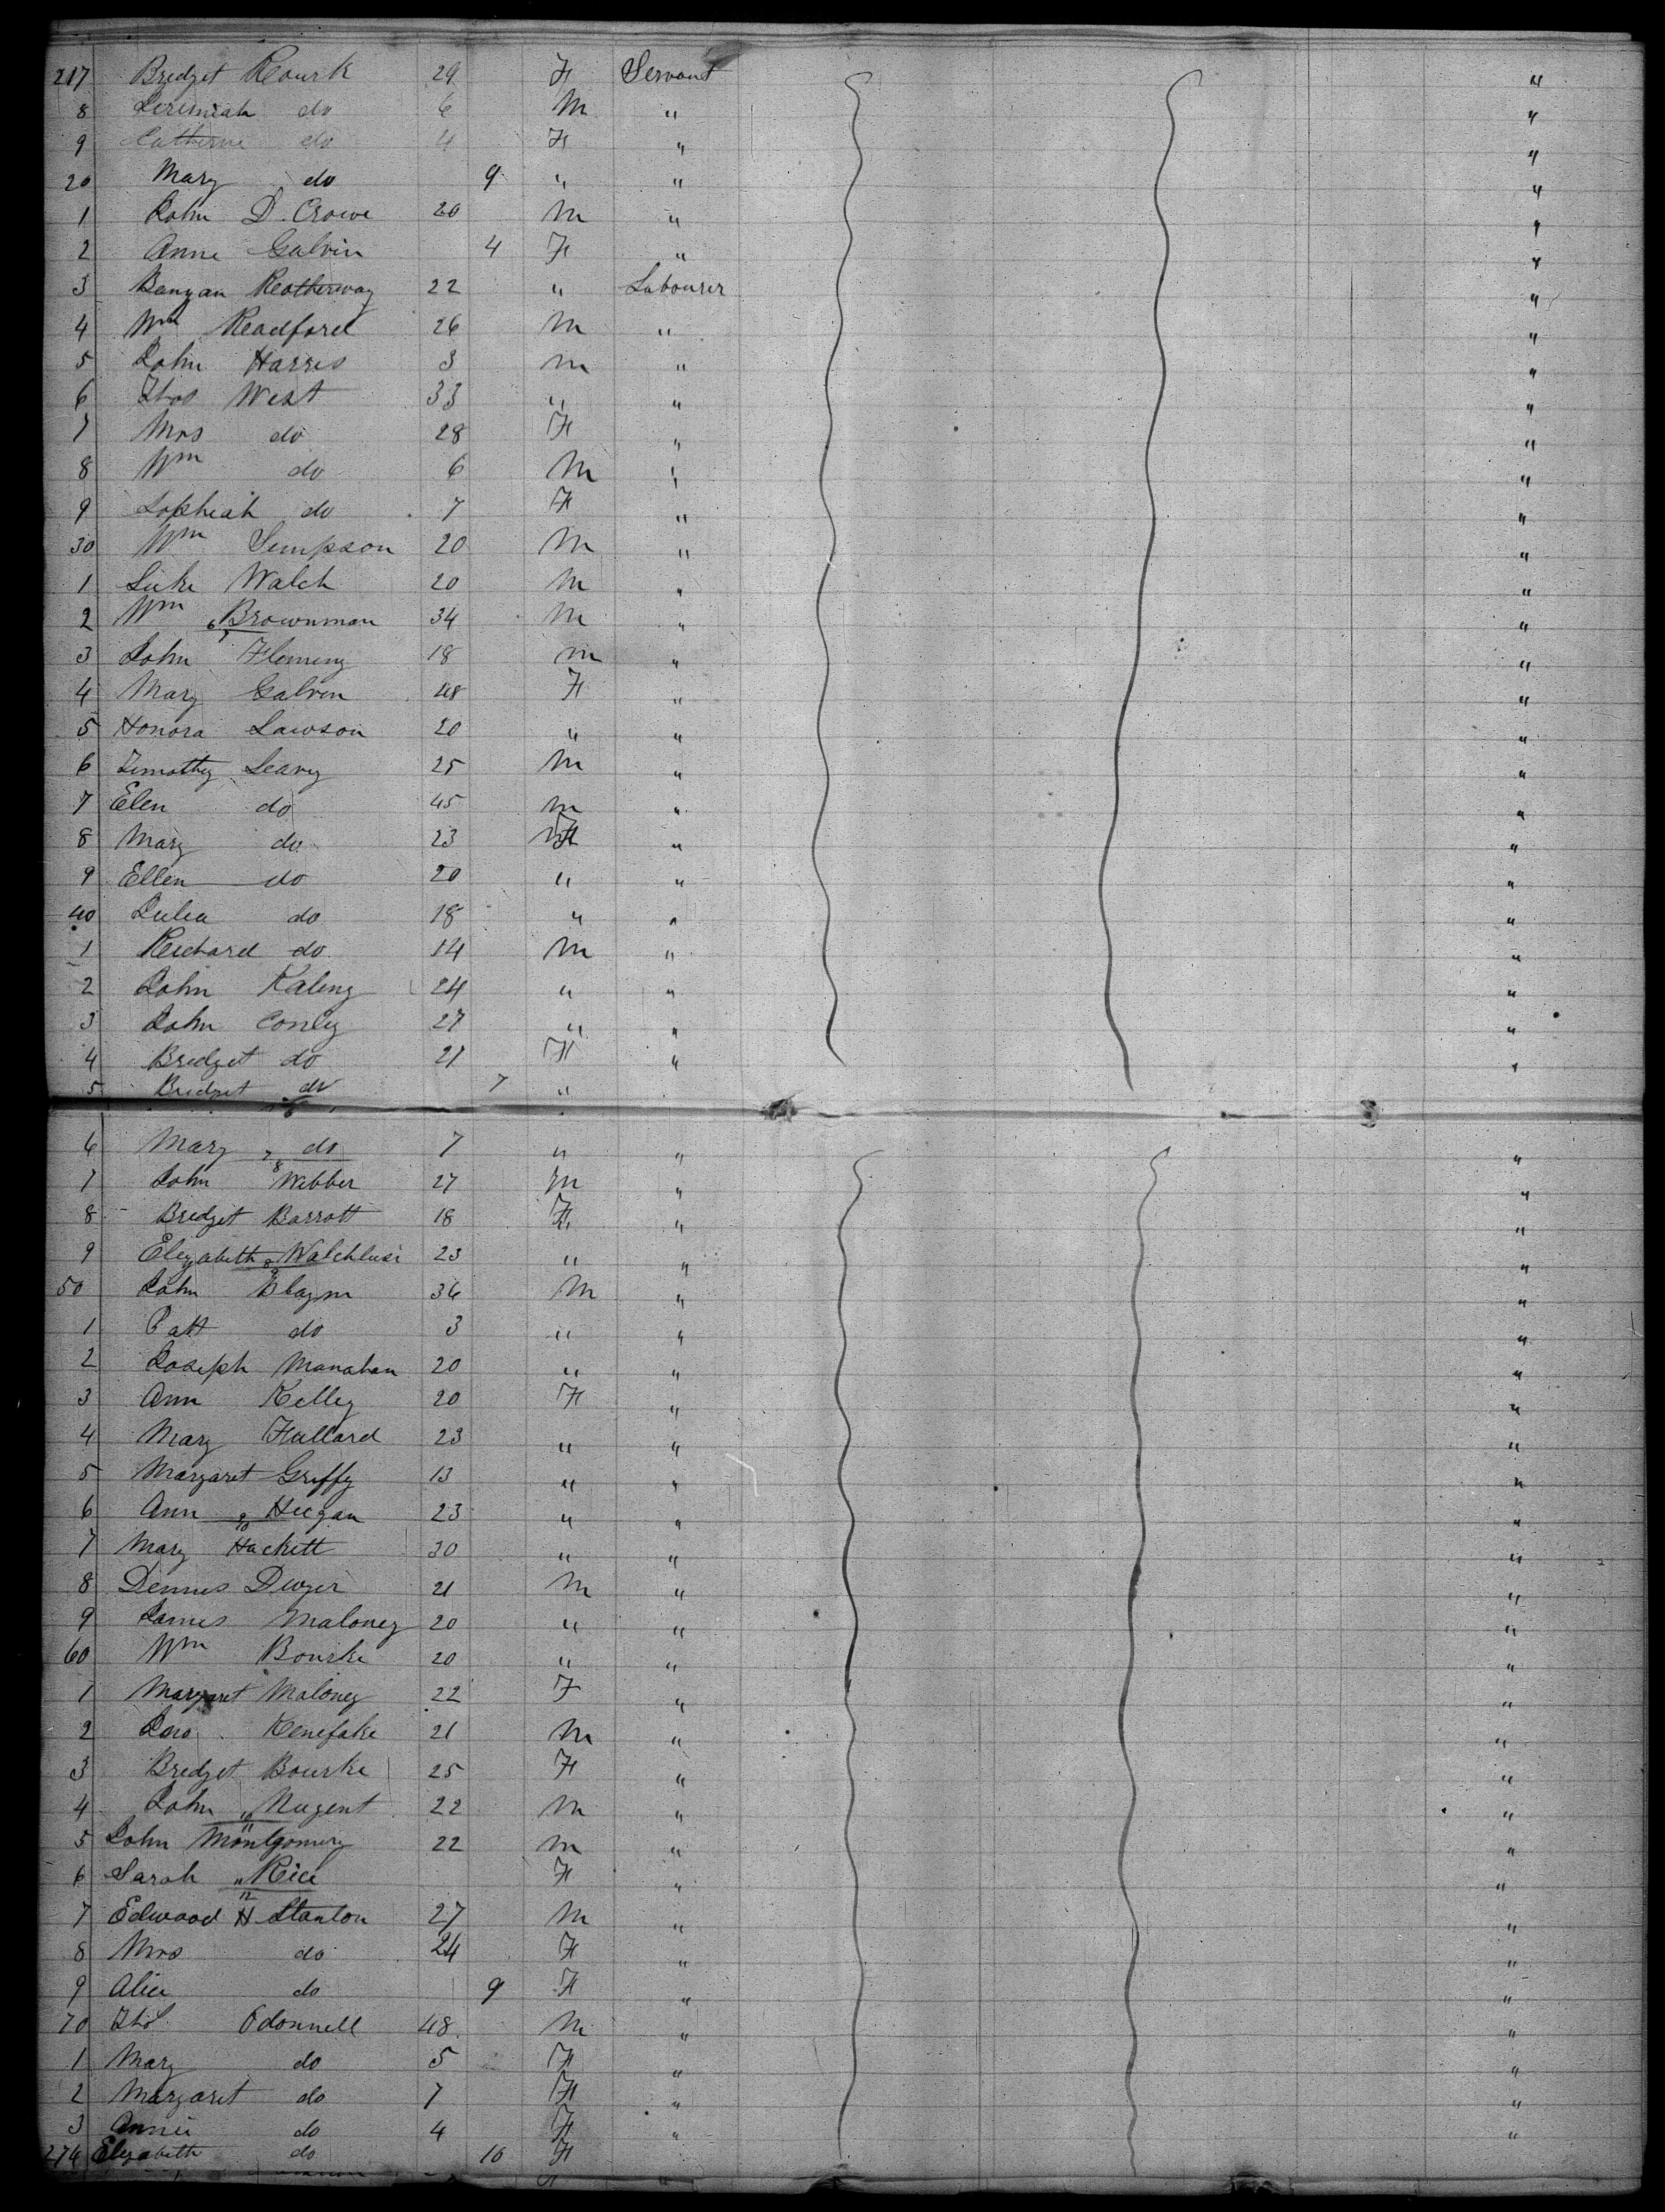 217 Bredget Rourk 29 F Servant "
8 Jeremiah do 6 M " "
9 Catherine do 4 F " "
20 Mary do 9 " " "
1 John D. Crowe 20 M " "
2 Anne Galvin 4 F " "
3 22 " Labourer "
4 Wm Readford 26 M " "
5 John Harris 3 M " "
6 Thos West 33 " " "
7 Mrs do 28 F " "
8 Wm do 6 M " "
9 Sopheah do 7 F " "
30 Wm Simpson 20 M " "
1 Luke Walch 20 M " "
2 Wm Brownman 34 M " "
3 John Fleming 18 M " "
4 Mary Galven 48 F " "
5 Honora Lawson 20 " " "
6 Timothy Leary 25 M " "
7 Elen do 45 M " "
8 Mary do 23 F " "
9 Ellen do 20 " " "
40 Julia do 18 " " "
1 Reichard do 14 M " "
2 John Kaleny 24 " " "
3 John Conley 27 " " "
4 Bredget do 21 F " "
5 Bredget do 7 "
6 Mary do 7 " " "
7 John Webber 27 M " "
8 Bredget Barrott 18 F " "
9 Elezabeth 23 " " "
50 John 36 M " "
1 Patt do 3 " " "
2 Joseph Manahan 20 " " "
3 Ann Kelley 20 F " "
4 Mary Fullard 23 " " "
5 Margaret Griffy 13 " " "
6 Ann Heegan 23 " " "
7 Mary Hackett 30 " " "
8 Dennis Dwyer 21 M " "
9 James Maloney 20 " " "
60 Wm Bourke 20 " " "
1 Margaret Maloney 22 F " "
2 Kenefake 21 M " "
3 Bredget Bourke 25 F " "
4 John Nugent 22 M " "
5 John Montgomery 22 M " "
6 Sarah Rice F " "
7 Edward H Stanton 27 M " "
8 Mrs do 24 F " "
9 Alice do 9 F " "
70 Thos Odonnell 48 M " "
1 Mary do 5 F " "
2 Margaret do 7 F " "
3 Annie do 4 F " "
274 Elezabeth do 10 F